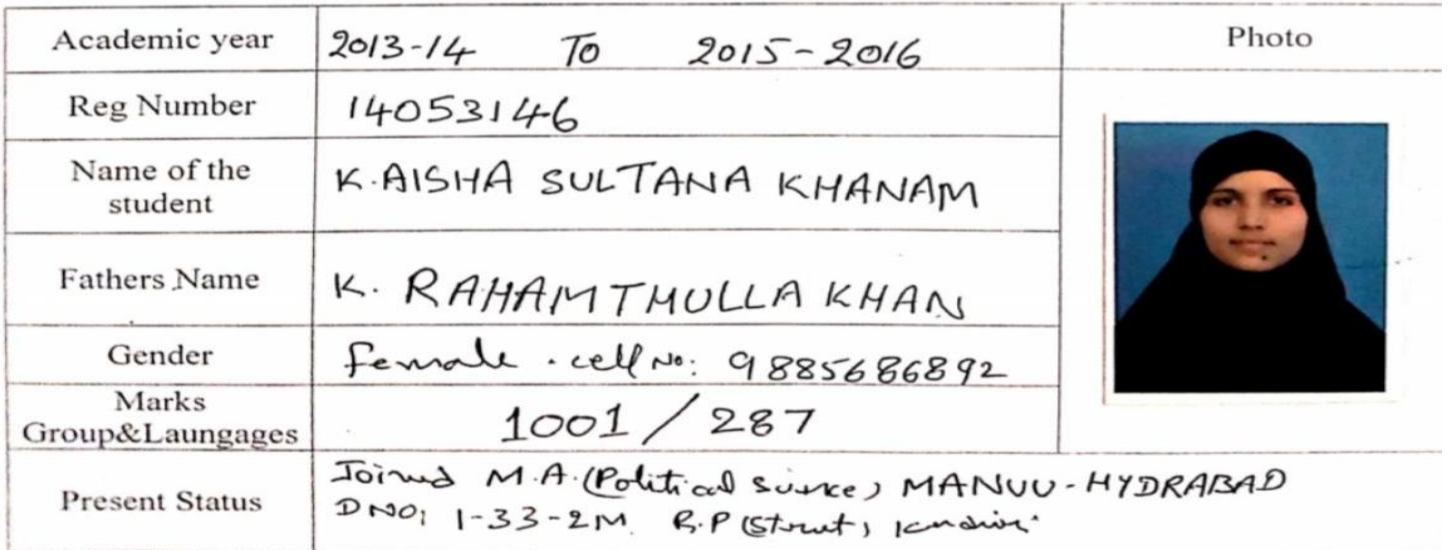 Academic year 2013-14 To 2015-2016 Photo
Reg Number 14053146
Name of the student K.AISHA SULTANA KHANAM
Fathers Name K. RAHAMTHULLA KHAN
Gender female . cell No: 9885686892
Marks Group&Laungages 1001 / 287
Present Status Joined M.A. (Political Science) MANUU-HYDRABAD
DNO: 1-33-2M. R.P (Street)